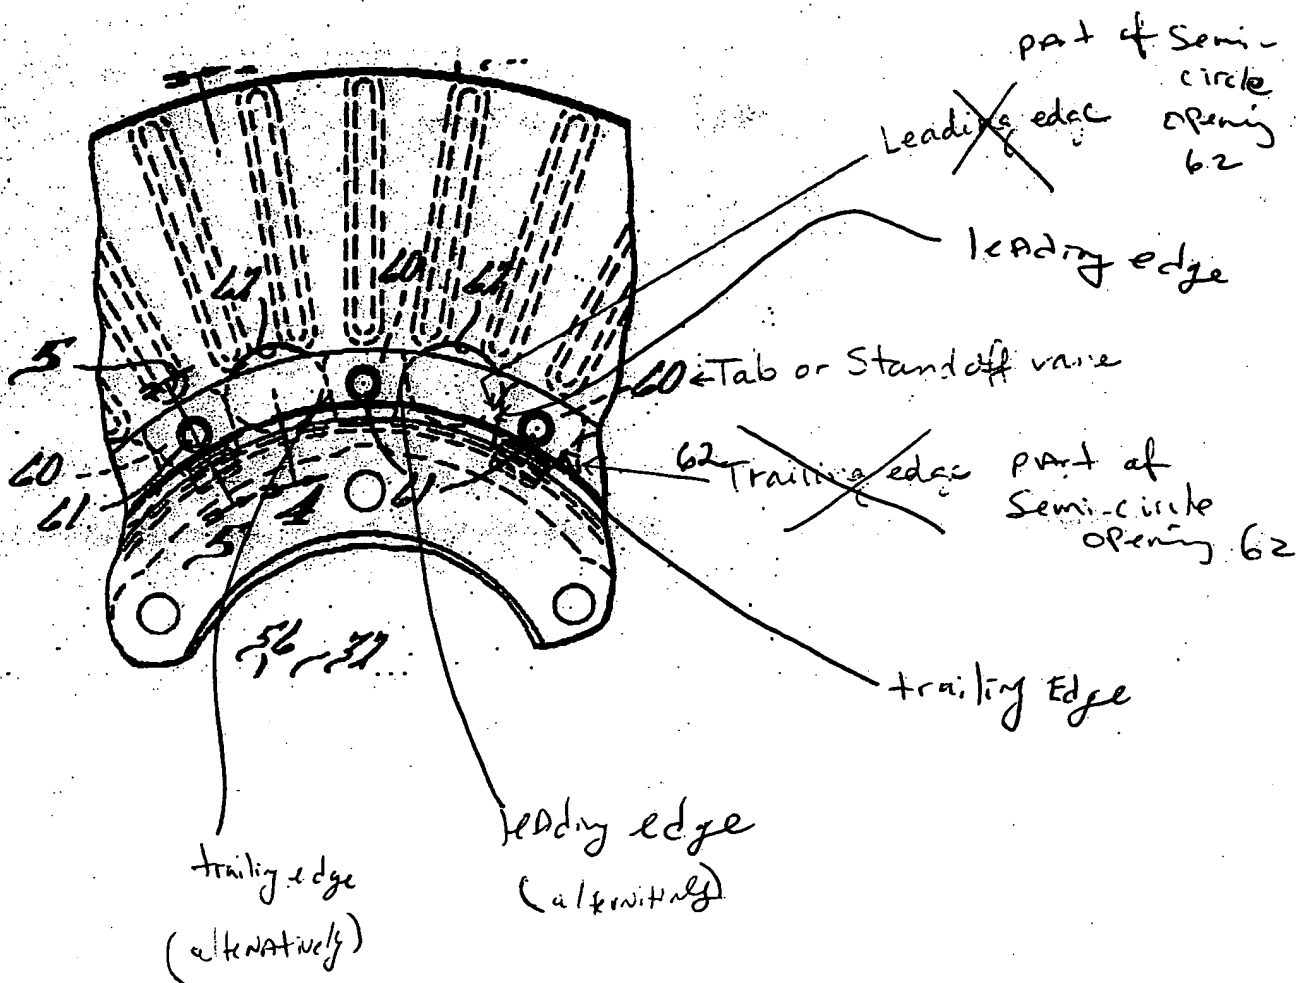 part of Semi-
circle
opening
62
Leading edge
leading edge
62
60
62
5
60
Tab or Standoff vane
62
Trailing edge
part of
Semi-circle
opening 62
60
61
4
61
5
56
37
trailing Edge
leading edge
(alternatively)
trailing edge
(alternatively)